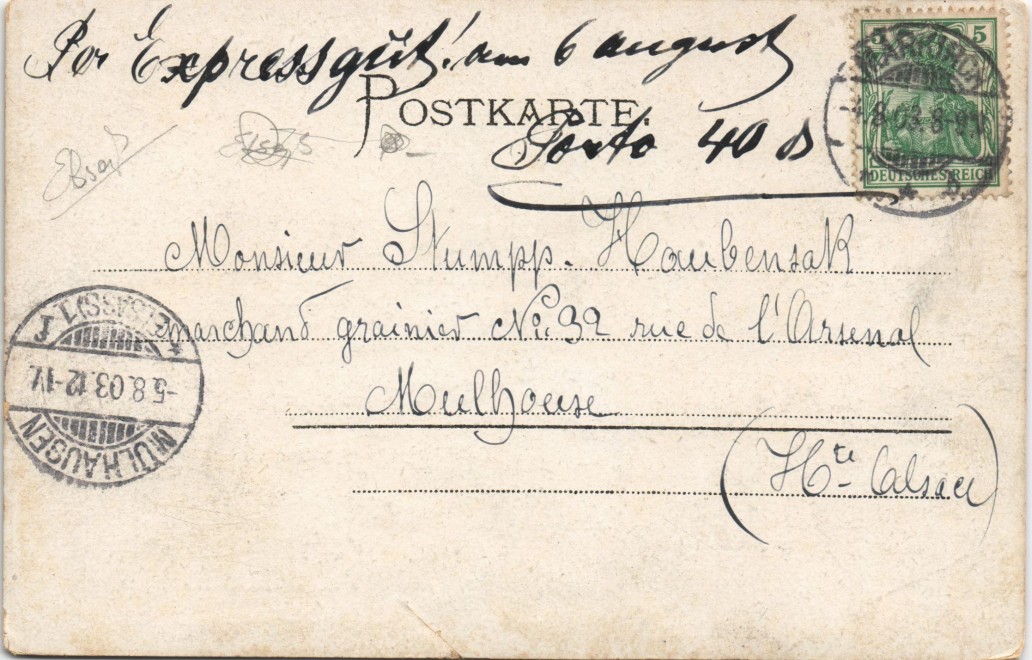 Per Expressgut! am 6 august
POSTKARTE.
Porto 40 ₰
5 5
DEUTSCHES REICH
MARKIRCH
4.8.03. 8-9V.
* b
Monsieur Stumpp-Haubensak
marchand grainier No 32 rue de l'Arsenal
Mulhouse
(Hte Alsace)
MÜLHAUSEN
-5.8.03.12-1V.
* (ELSASS) 1. f